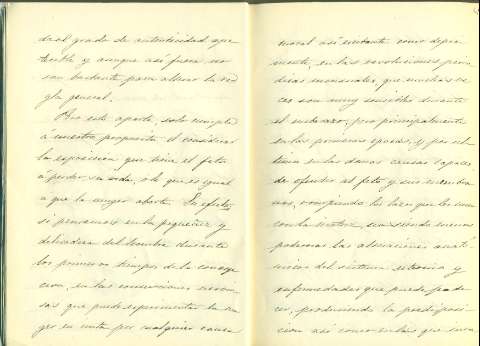 da al grado de autenticidad ape
tecible y aunque así fuera no
son bastante para alterar la re
gla general.
Por esta aparte, solo cumple
á nuestro proposito el considerar
la exposicion que tiene el feto
á perder su vida, ó lo que es igual
a que la muger aborte. En efecto
si pensamos en la pequeñez y
delicadeza del hombre durante
los primeros tiempos de la concep
cion, en las conmociones nervio
sas que puede experimentar la mu
ger en cinta por cualquier causa
moral así exitante como depri
mente, en las revoluciones perio
dicas mensuales, que muchas ve
ces son muy sensibles durante
el embarazo, pero principalmente
en las primeras epocas, y por ul
timo en las demas causas capaces
de afectar al feto y sus membra
nas, rompiendo los lazos que los unen
con la matriz, no siendo menos
poderosas las alteraciones anató
micas del sistema uterino y
enfermedades que puede pade
cer, produciendo la predisposi
cion así como en las que